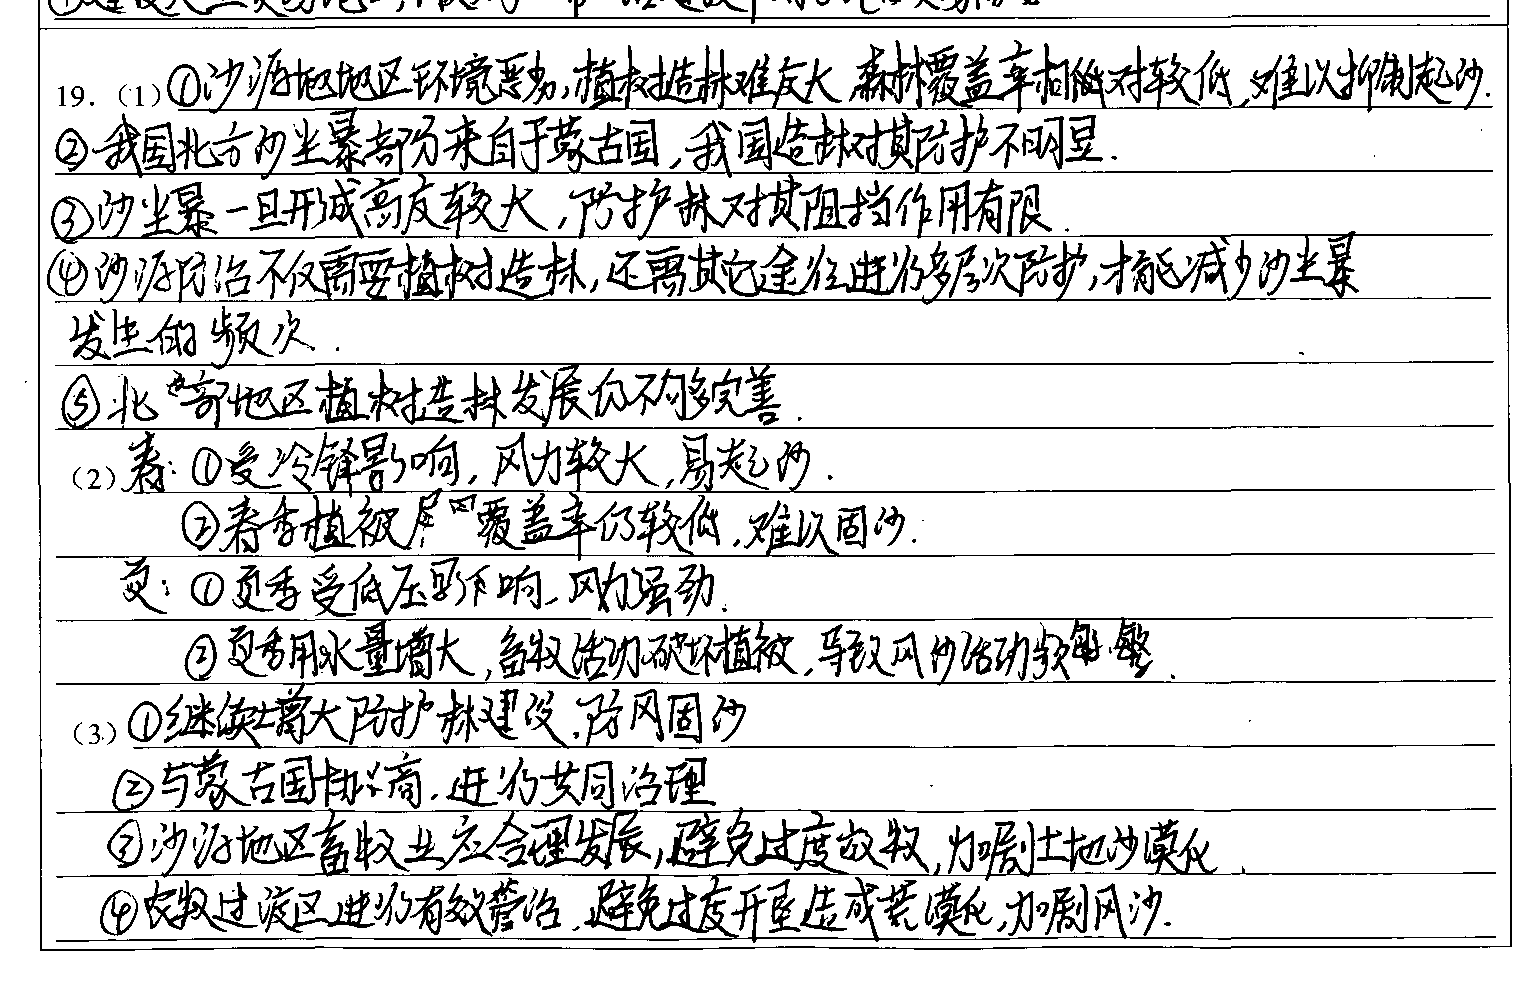 19.（1）①沙源地地区环境恶劣,植树造林难度大,森林覆盖率相对较低,难以抑制起沙.
②我国北方沙尘暴部分来自于蒙古国,我国造林对其防护不明显.
③沙尘暴一旦形成高度较大,防护林对其阻挡作用有限.
④沙源防治不仅需要植树造林,还需其它途径进行多层次防护,才能减少沙尘暴
发生的频次.
⑤北部地区植树造林发展仍不够完善.
（2）春:①受冷锋影响,风力较大,易起沙.
②春季植被覆盖率仍较低,难以固沙.
夏:①夏季受低压影响,风力强劲.
②夏季用水量增大,畜牧活动破坏植被,导致风沙活动频繁.
（3）①继续增大防护林建设,防风固沙
②与蒙古国协商,进行共同治理
③沙源地区畜牧业应合理发展,避免过度放牧,加剧土地沙漠化.
④农牧过渡区进行有效管治,避免过度开垦造成荒漠化,加剧风沙.